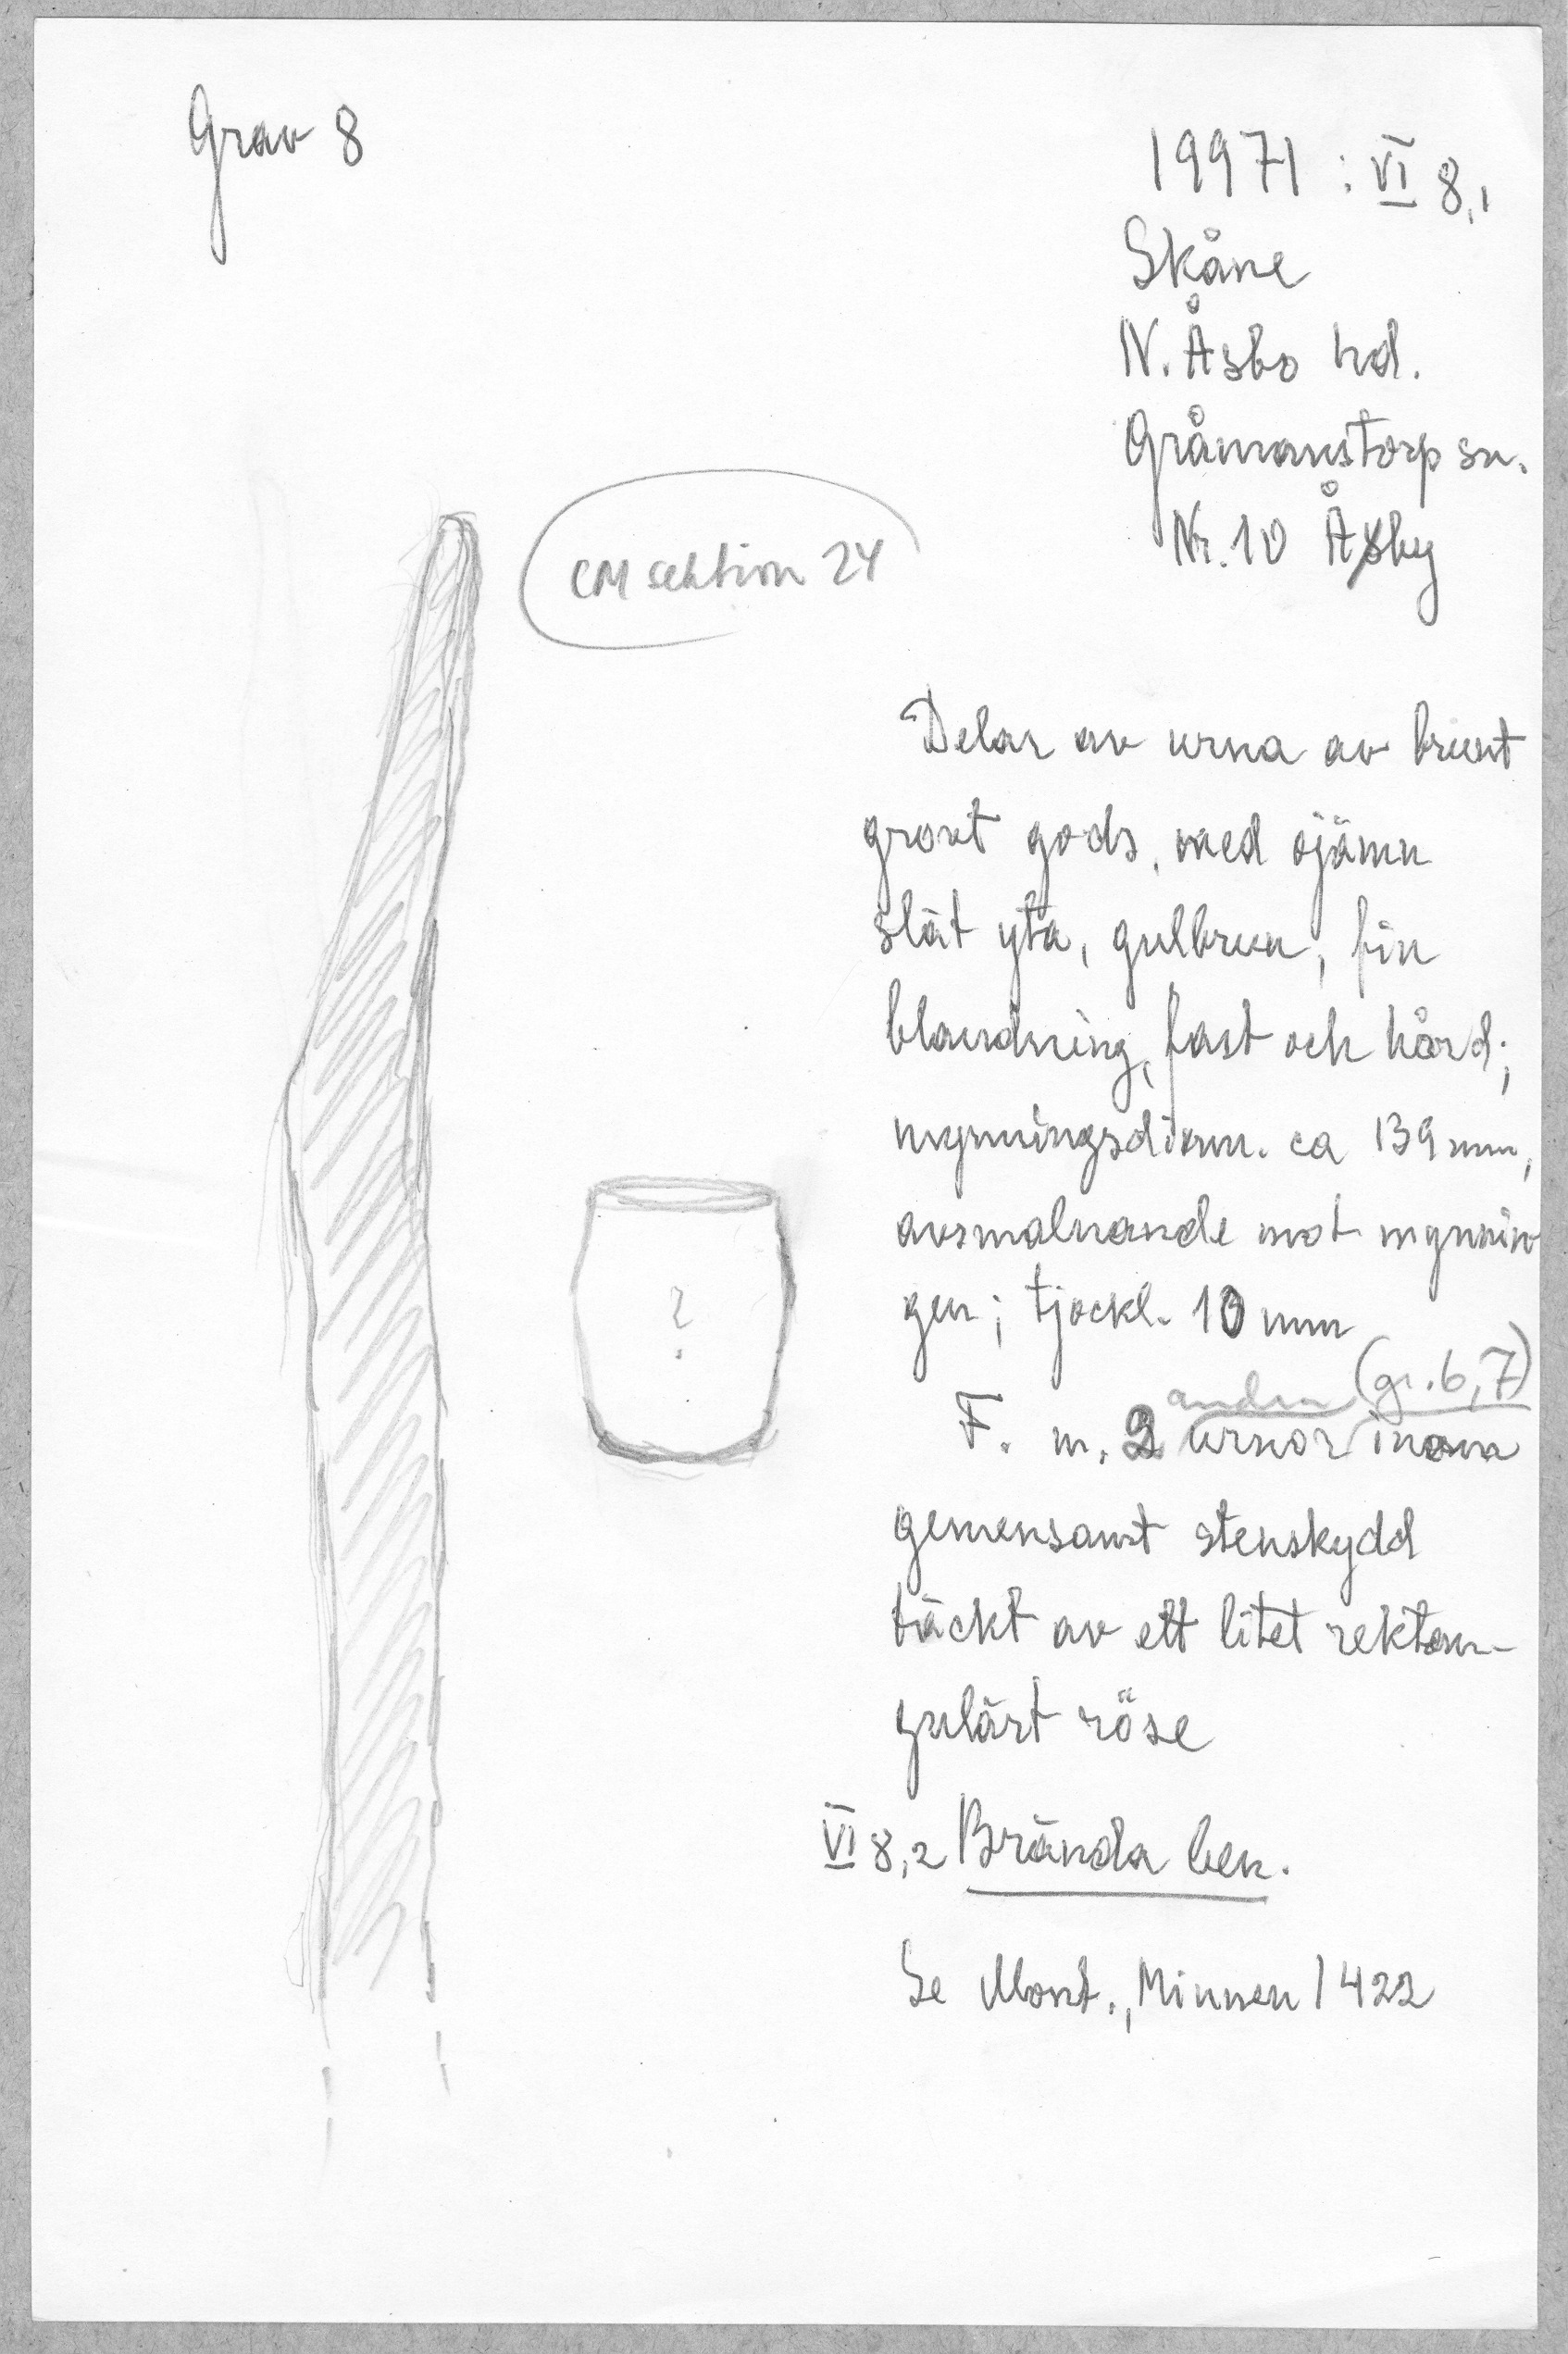 Grav 8
19971 : VI 8,1
Skåne
N. Åsbo hd.
Gråmanstorp sn.
Nr. 10 Åsby
CM sektion 24
Delar av urna av brunt
grovt gods, med ojämn
slät yta, gulbrun, fin
blandning, fast och hård;
mynningsdiam. ca 139 mm,
avsmalnande mot mynnin
gen; tjockl. 10 mm
andra (gr. 6, 7)
F. m. 2 urnor inom
gemensamt stenskydd
täckt av ett litet rektan-
gulärt röse
VI 8,2 Brända ben.
Se Mont., Minnen 1422
?